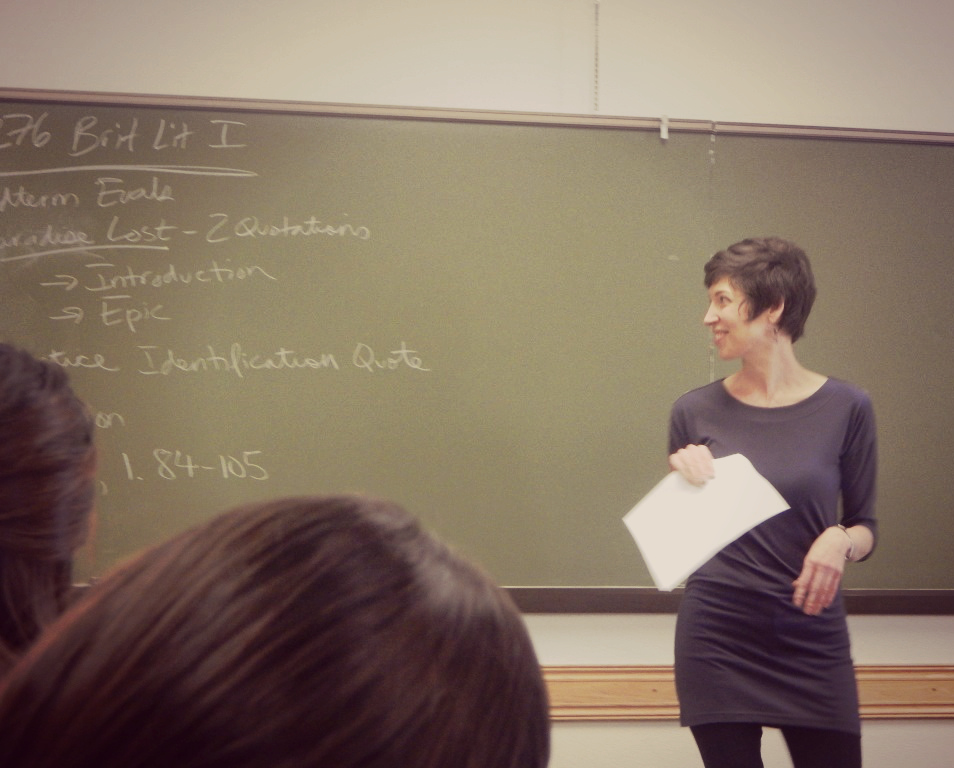 276 Brit Lit I
dterm Evals
aradise Lost - 2 Quotations
→ Introduction
→ Epic
tice Identification Quote
on
, 1. 84-105